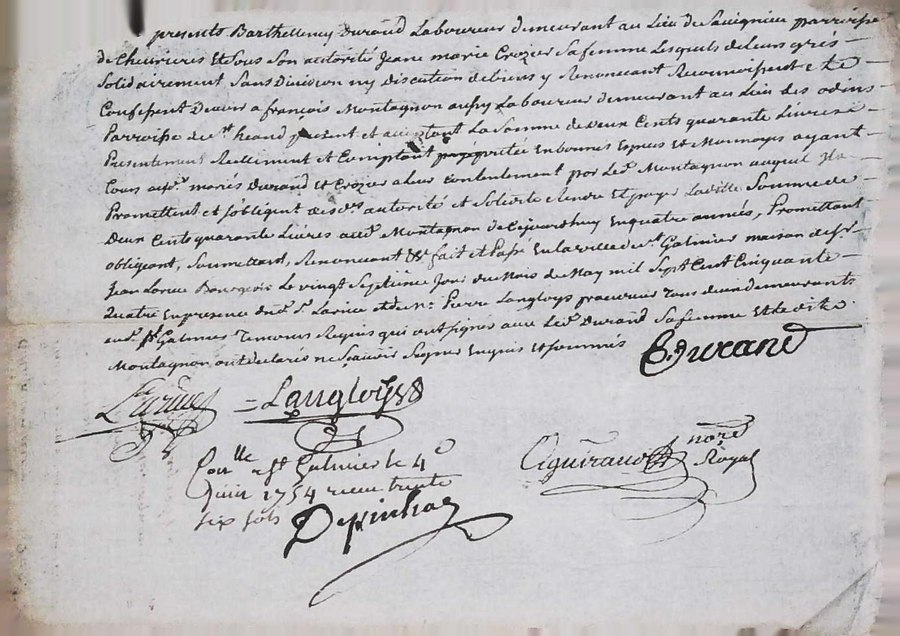 presents Barthellemy Durand Laboureur demeurant au Lieu de Savignieu parroisse
de Chevrieres Et Sous Son autorité Jeane marie Crozer Sa femme Lesquels de Leurs grés
Solidairement Sans Division ny Discution de biens y Renoncant Reconnoissent et
Confessent Devoir a françois Montagnon aussy Laboureur demeurant au Lieu des odins
Parroisse de st heand present et acceptant La Somme de Deux Cents quarante Livres
Presentement Reellement et Comptant Enbonnes Especes et Monnoyes ayant
Cours auxd. mariés Durand et Crozer a leur Contentement par Led. Montagnon auquel Ils
Promettent et s'obligent autorité et Solidité Rendre Et payer Laditte Somme de
Deux Cents quarante Livres aud. Montagnon de Cejourdhuy En quatre années, Promettant
obligeant, Soumettant, Renoncant &r fait et Passé En la ville de st. Galmier maison de sr.
Jean Bourgeois Le vingt Septieme Jour du Mois de May mil Sept Cent Cinquante
Quatre En presence dud. Sr. et de Me. Pierre Langloys procureur Tous deux demeurants
aud. st. Galmier Temoins Requis qui ont signés avec Led. Durand Sa femme Et Led.
Montagnon ont declarés ne Scavoir Signer Enquis et Sommés
B. Durand
= Langloys
Conlle a St Galmier le 4e
Juin 1754 receu trente
six sols
Depinhac
nore
Royal